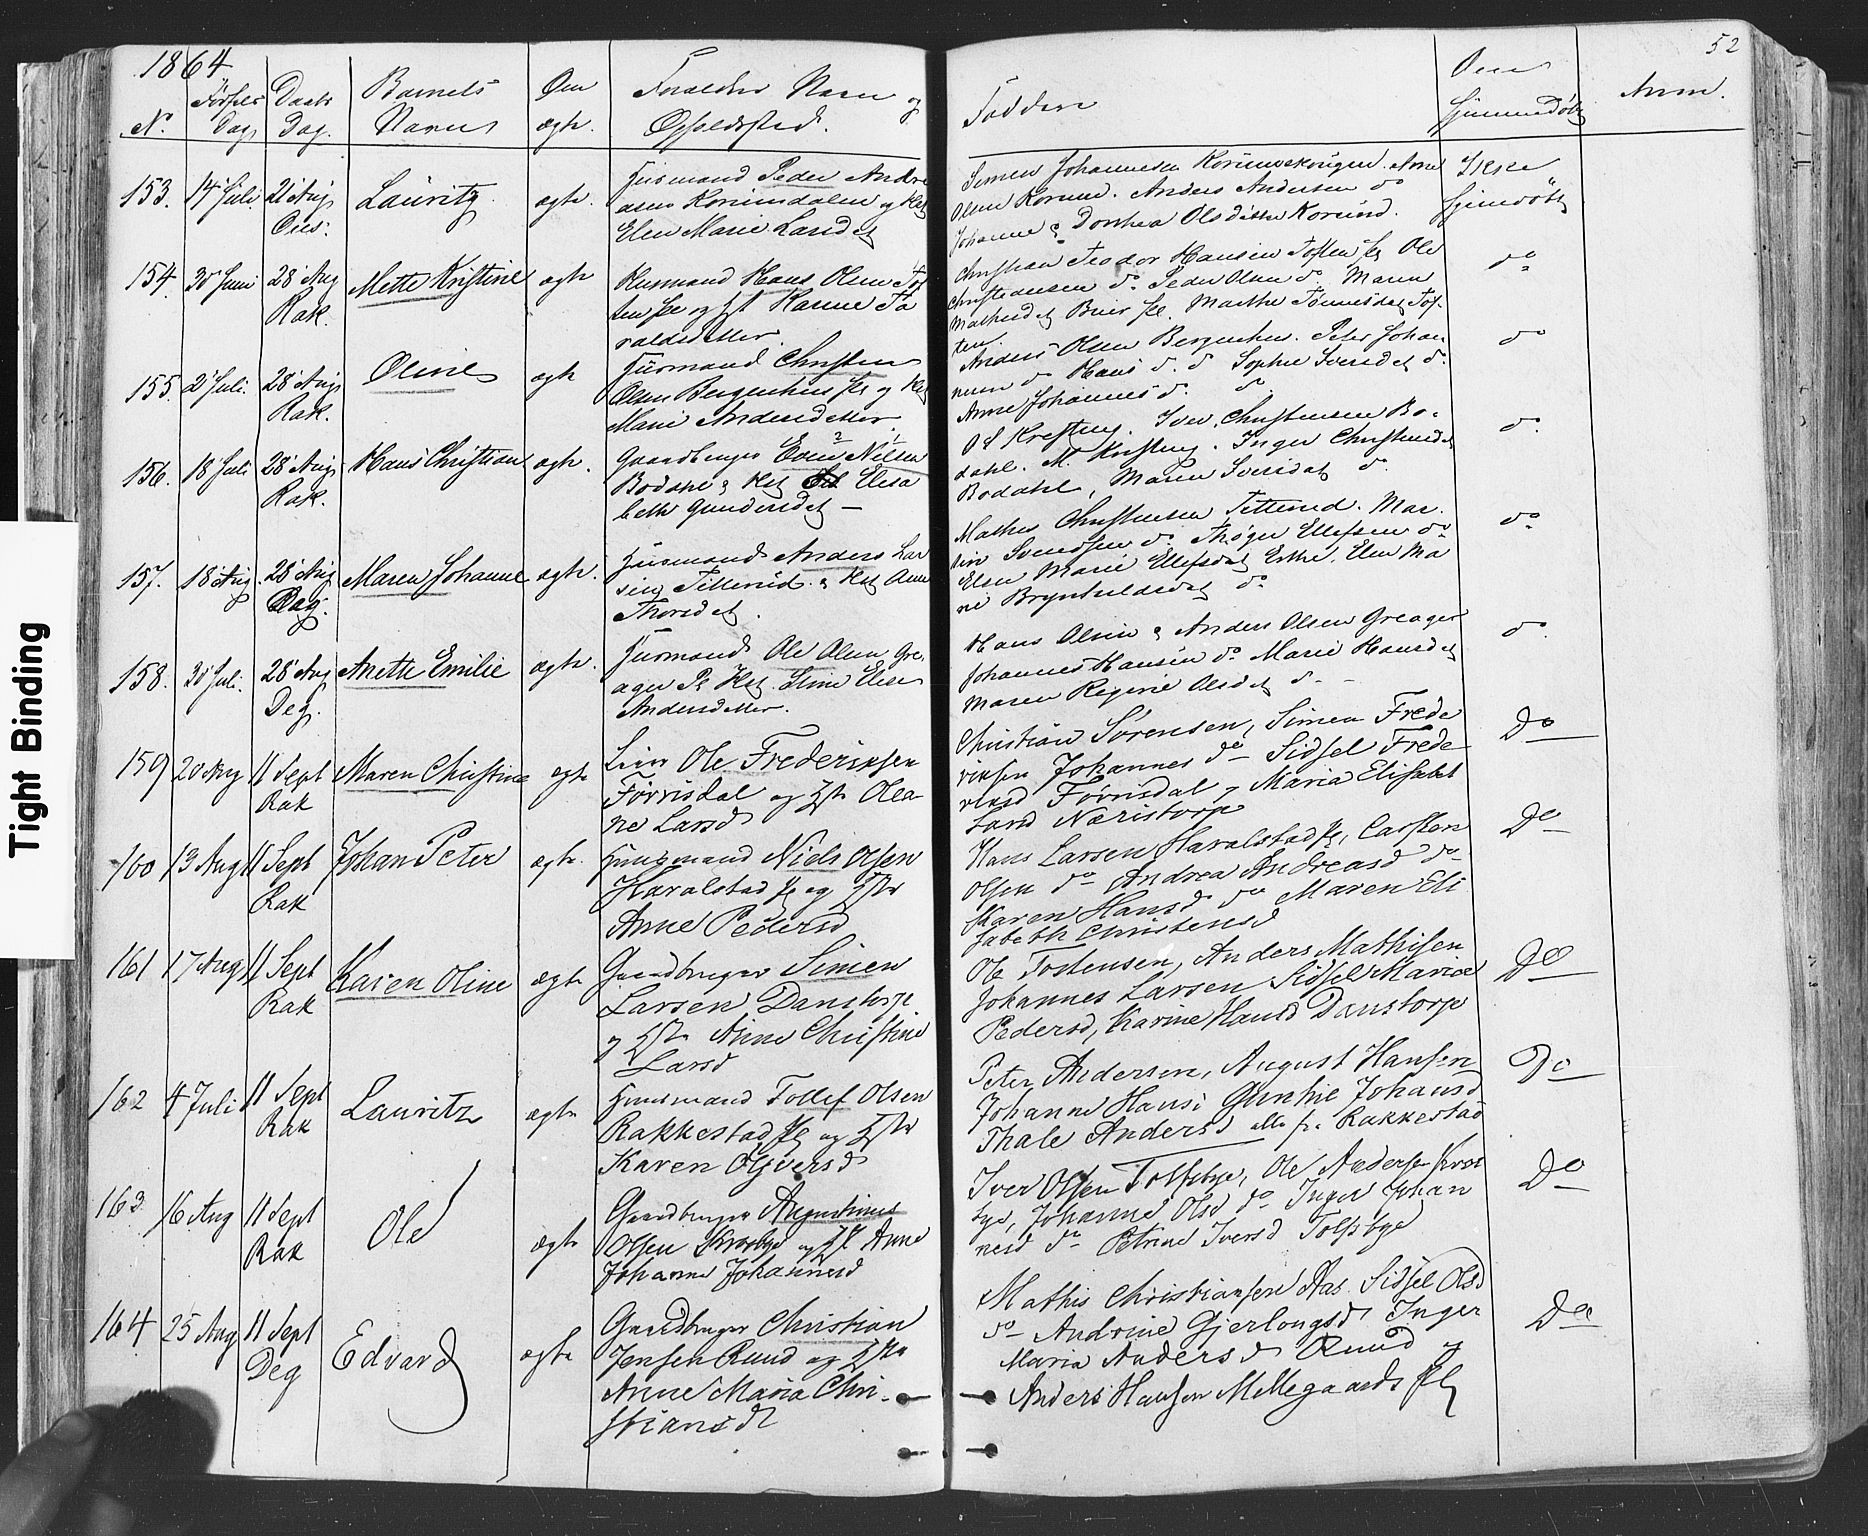 1864
52
N.
Fødsels
Dag
Daabs
Dag.
Barnets
Navn
Om
ægte.
Forældres Navn og
Opholdssted.
Faddere
Om
hjemmedøbt
Anm.
153. 14 Juli 21 Aug Lauritz ægte. Huusmand Peder Andre
asen Korsundalen og Kst
Elen Marie Larsdt
Simen Johannesen
Olsen Korsund. Anders Andersen do
Johanne & Dorthea Olsdatter Korsund.
Ikke
hjemdøbt
154. 30 Juni 28 Aug
Rak. Mette Kristine ægte Huusmand Hans Olsen Tof
ten Pl og Hst Karine To
raldsdatter.
Christian Teodor Hansen Toften Pl Ole
Christiansen do Peder Olsen do Maren
Mathisdt Pl. Marthe Tønnesdt Tof-
ten.
do
155. 2 Juli. 28 Aug
Rak. Oline ægte Huusmand Christen
Olsen Bergerhus Pl og Kst
Marie Andersdatter.
Anders Olsen Bergerhus. Peter Johan
nesen do Hans do. do Sophie Iversdt do.
Anne Johannesd. do
do
156. 18 Juli 28 Aug
Rak. Hans Christian ægte. Gaardbruger Even Nilsen
Bødahl & Kst Elisa
beth Gundersdt —
Iver Christensen Bø-
dahl. Inger Christensdt
Bødahl, Maren Iversdt do.
do.
157. 18 Aug 28 Aug
Rag. Maren Johanne ægte. Huusmand Anders Lar
sen Titterud & Kst Anne
Thorsdt.
Mathis Christensen Titterud. Mar-
tin Svendsen do. Thøger Ellefsen do
Elen Marie Ellefsdt Elen Ma
rie Brynhildsdt do
do
158. 30 Juli. 28 Aug
Deg. Anette Emilie ægte. Huusmand Ole Olsen Gre-
ager Pl Kst. Stine Elise
Andersdatter.
Hans Olsen & Anders Olsen Greager
Johannes Hansen do Marie Hansdt
Maren Regine Olsdt do -
do
159 20 Aug 11 Sept
Rak Maren Christine ægte Ole Frederiksen
Førrisdal og Hst Olea-
ne Larsd
Christian Sørensen, Simen Frede
riksen Johannes do Sidsel Frede
riksd Førrisdal, Maria Elisabet
Larsd Næristorp
Do
160 13 Aug 11 Sept
Rak Johan Peter ægte. Huusmand Niels Olsen
Haralstad Pl og Hstr
Anne Pedersd
Hans Larsen Haralstad Pl, Carsten
Olsen do Andrea Andreasd do
Karen Hansd do Maren Eli
sabeth Christensd
Do
161 17 Aug 11 Sept
Rak Karen Oline ægte Gaardbruger Simen
Larsen Danstorp
og Hstr Anne Christine
Larsd
Ole Tostensen, Anders Mathisen
Johannes Larsen Sidsel Maria
Pedersd, Karine Hansd Danstorp
Do
162 4 Juli 11 Sept
Rak Lauritz ægte Huusmand Tollef Olsen
Rakkestad Pl og Hstr
Karen Oliversd
Peter Andersen, August Hansen
Johanne Hansd Gunhie Johansd
Thale Andersd alle fra Rakkestad
Do
163 16 Aug 11 Sept
Rak Ole ægte Gaardbruger Augustinus
Olsen Krosby og Hst Anne
Johanne Johannesd
Iver Olsen Tolfsbye, Ole Andersen Kros
bye, Johanne Olsd do Inger Johan
nesd do Petrine Iversd Tolfsbye
Do
164 25 Aug 11 Sept
Deg Edvard ægte Gaardbruger Christian
Jensen Ruud og Hstr
Anne Maria Chri-
stiansdt
Mathis Christiansen Aas Sidsel Olsd
do Andrine Gjerlougsd Inger
Maria Andersd Ruud og
Anders Hansen Mellegaards Pl
Do
Tight Binding